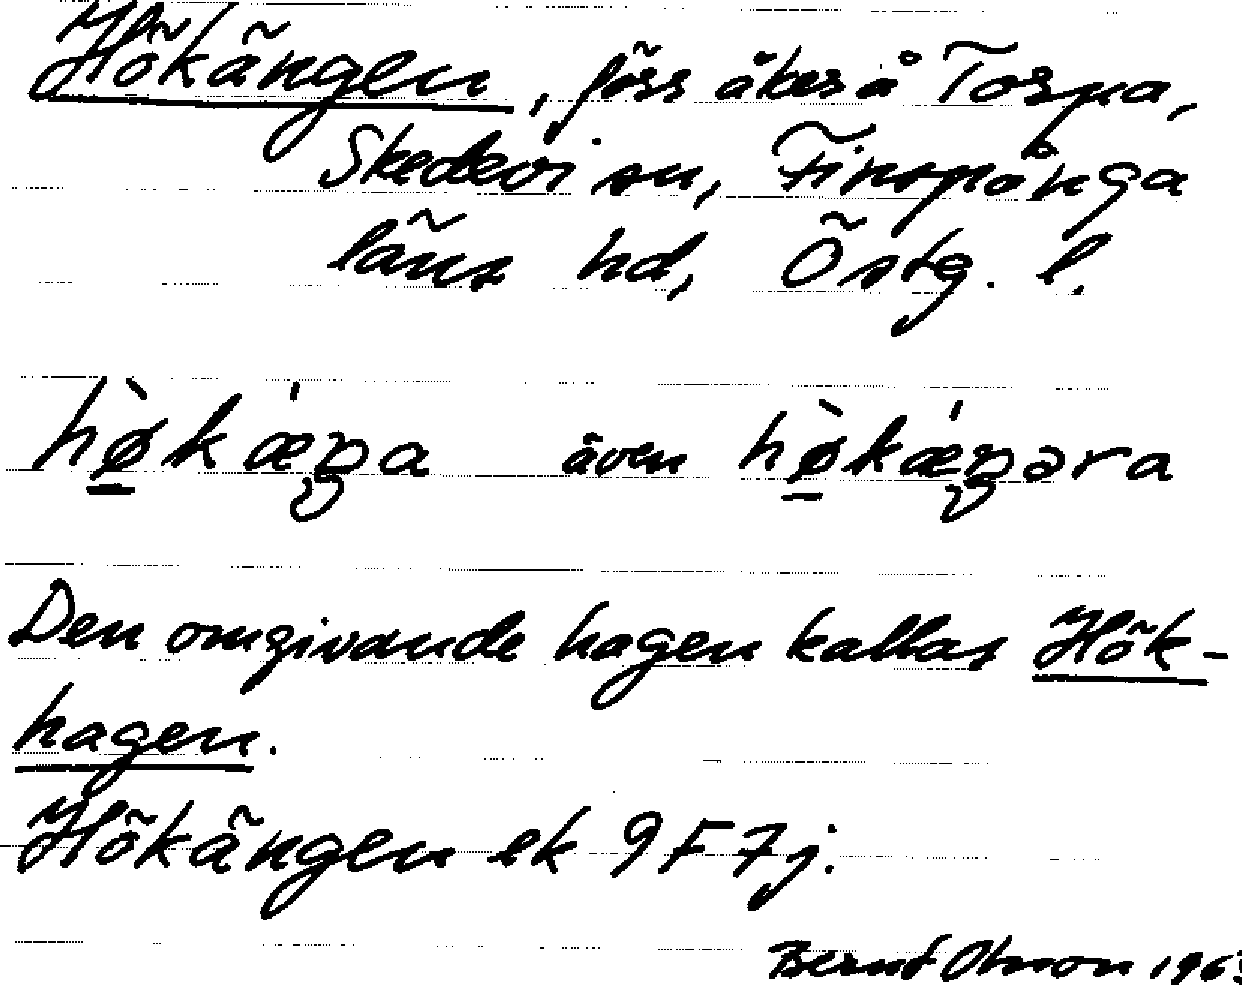 Hökängen, förr åker å Torpa,
Skedevi sn, Finspånga
läns hd, Östg. l.
hø̀kǽŋa även hø̀kǽŋəra
Den omgivande hagen kallas Hök-
hagen.
Hökängen ek 9F7j.
Bernt Olsson